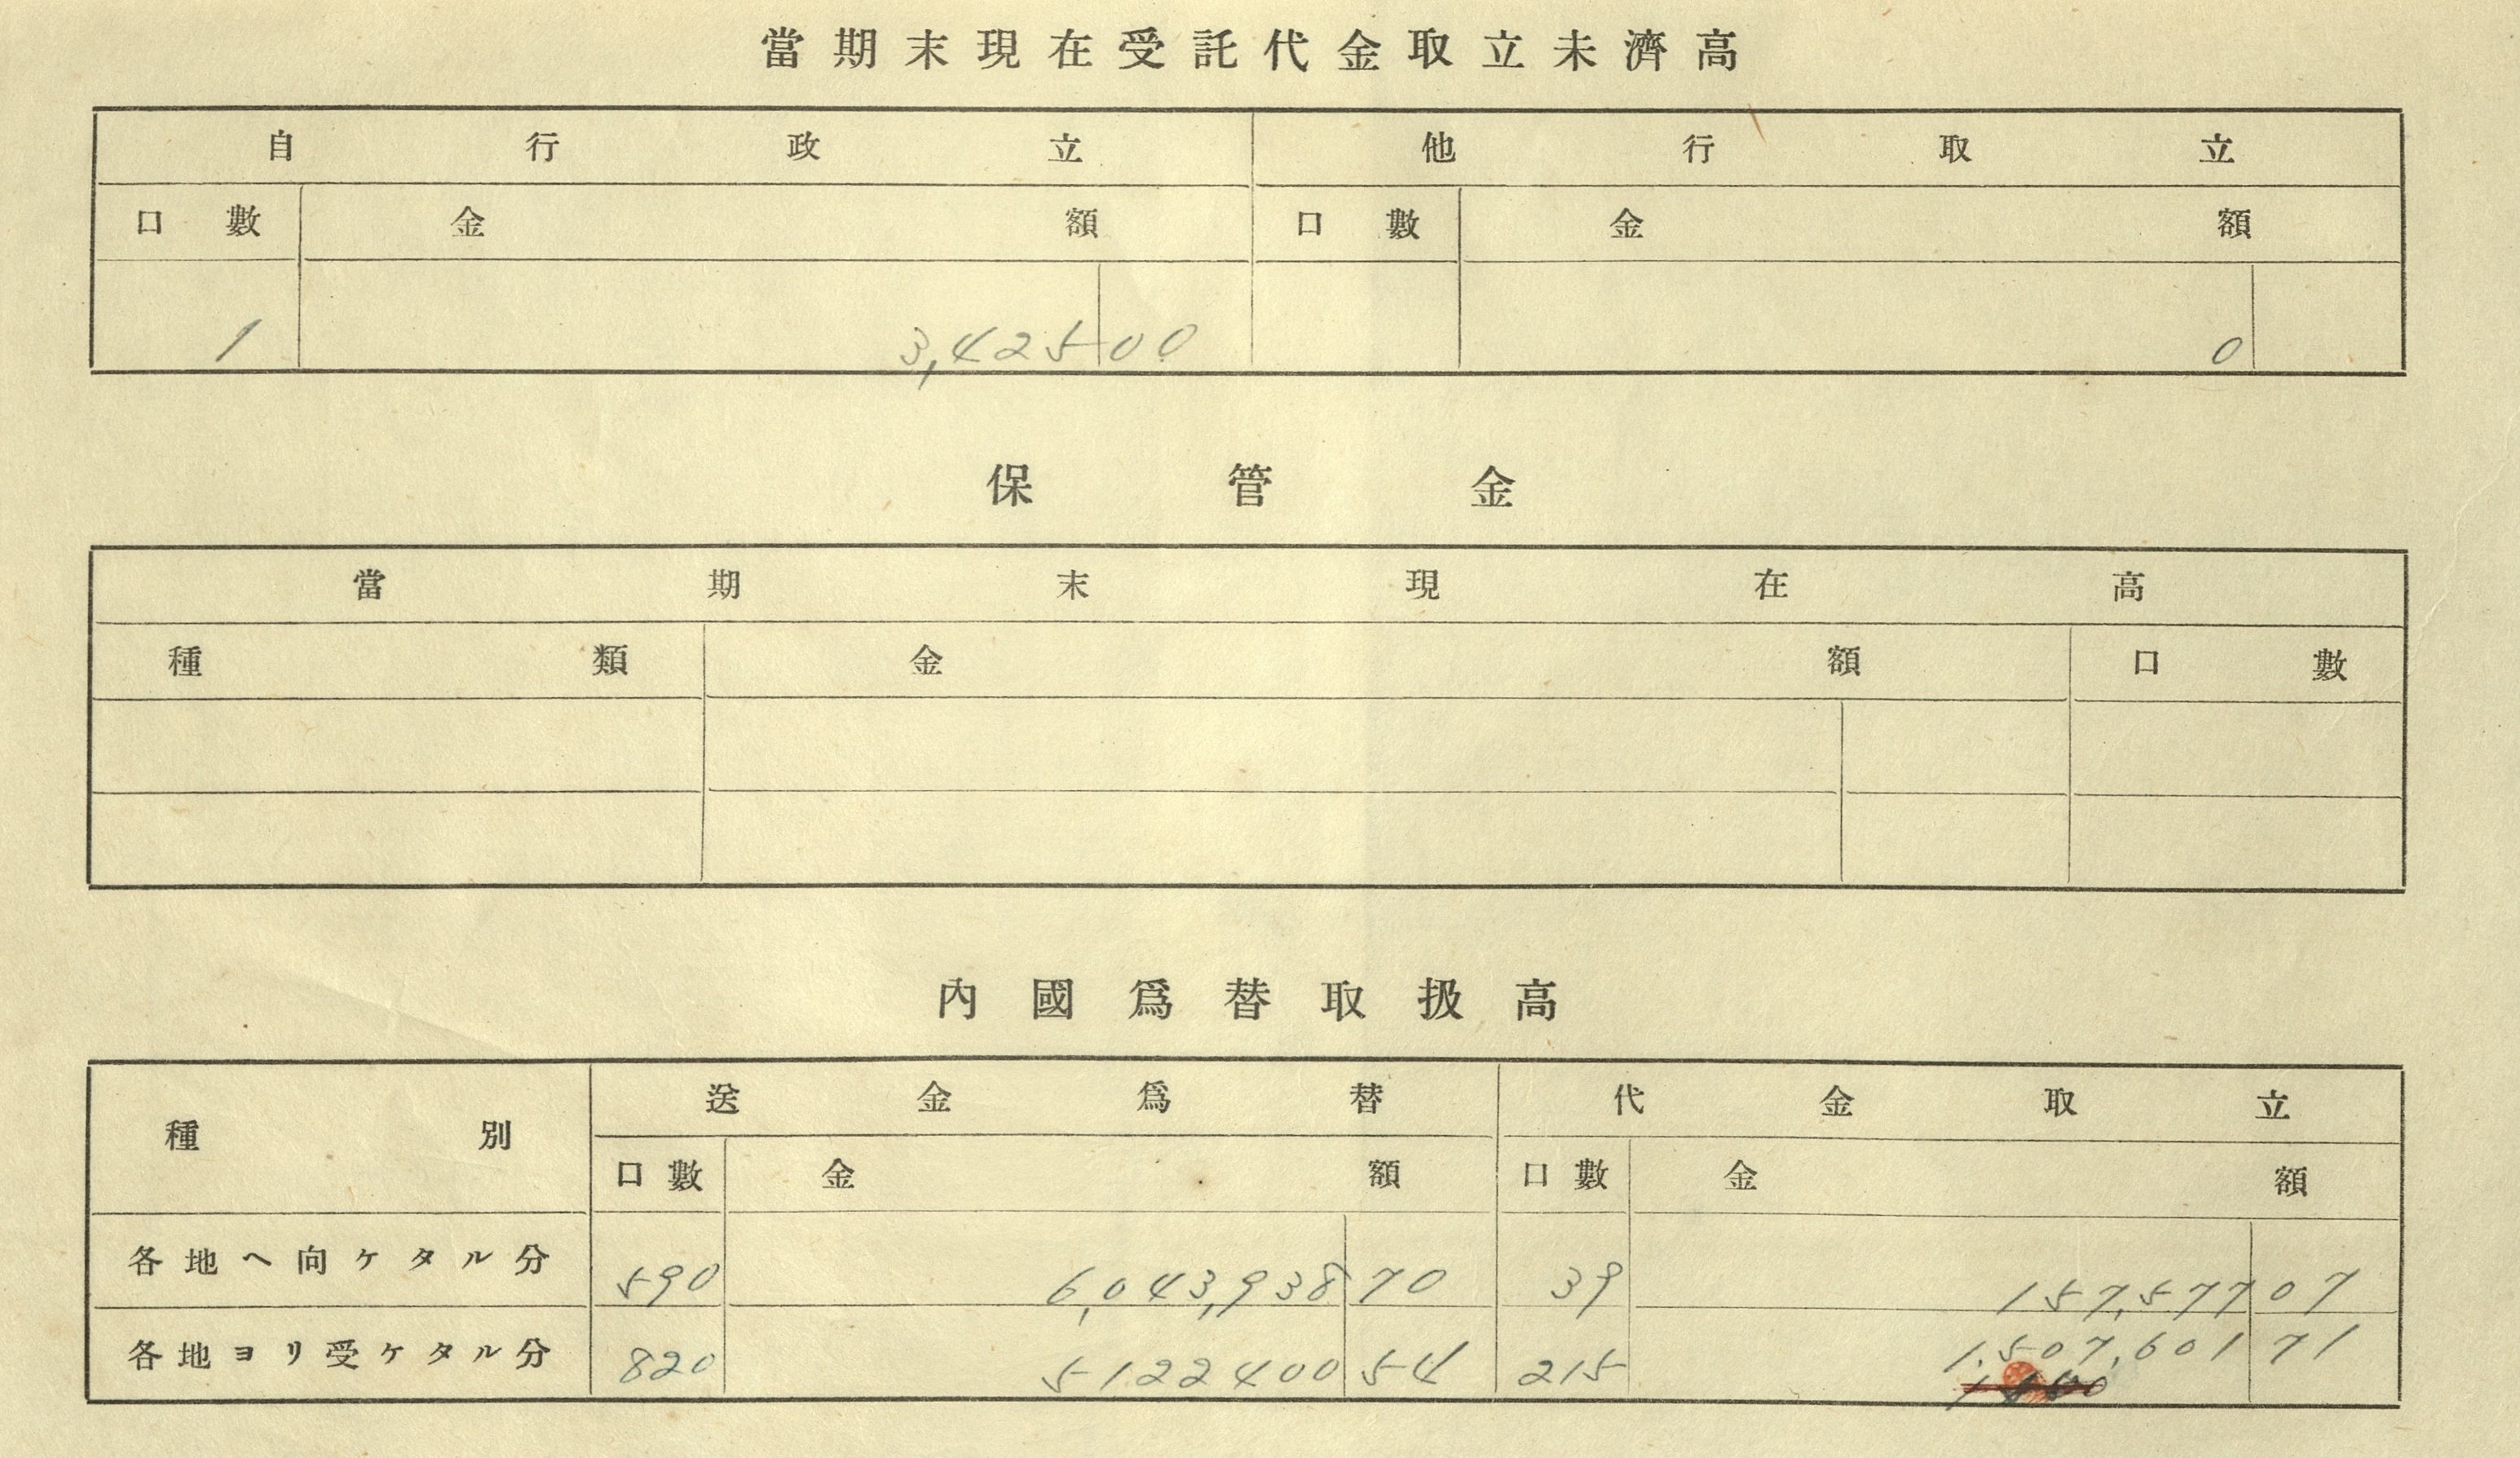 當期末現在受託代金取立未濟高
自行政立 他行取立
口數 金額 口數 金額
1 3,425 00 0
保管金
當期末現在高
種類 金額 口數
內國爲替取扱高
種別 送金爲替 代金取立
口數 金額 口數 金額
各地ヘ向ケタル分 590 6,043,938 70 39 157,577 07
各地ヨリ受ケタル分 820 5122400 54 215 1,507,601 71